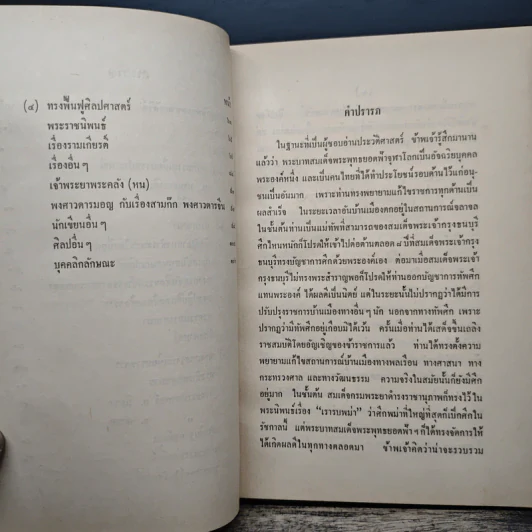 (๔) ทรงฟื้นฟูศิลปศาสตร์
พระราชนิพนธ์
เรื่องรามเกียรติ์
เรื่องอื่น ๆ
เจ้าพระยาพระคลัง (หน)
พงศาวดารมอญ กับเรื่องสามก๊ก พงศาวดารจีน
นักเขียนอื่น ๆ
ศิลปอื่น ๆ
บุคคลิกลักษณะ
คำปรารภ
ในฐานะที่เป็นผู้ชอบอ่านประวัติศาสตร์ ข้าพเจ้ารู้สึกมานาน
แล้วว่า พระบาทสมเด็จพระพุทธยอดฟ้าจุฬาโลกเป็นอัจฉริยบุคคล
พระองค์หนึ่ง และเป็นคนไทยที่ได้ทำประโยชน์รอบด้านไว้แก่อนุ-
ชนเป็นอันมาก เพราะท่านทรงพยายามแก้ไขราชการทุกด้านเป็น
ผลสำเร็จ ในระยะเวลาอันบ้านเมืองตกอยู่ในสถานการณ์จลาจล
ในชั้นต้นท่านเป็นแม่ทัพที่สามารถของสมเด็จพระเจ้ากรุงธนบุรี
ศึกไหนหนักก็โปรดให้เข้าไปต่อต้านตลอด ๘ ปีที่สมเด็จพระเจ้ากรุง
ธนบุรีทรงบัญชาการศึกด้วยพระองค์เอง ต่อมาเมื่อสมเด็จพระเจ้า
กรุงธนบุรีไม่ทรงพระสำราญพอก็โปรดให้ท่านออกบัญชาการทัพศึก
แทนพระองค์ ได้ผลดีเป็นนิตย์ แต่ในระยะนั้นไม่ปรากฏว่าได้มีการ
ปรับปรุงราชการบ้านเมืองทางอื่น ๆ นัก นอกจากทางทัพศึก เพราะ
ปรากฏว่ามีทัพศึกอยู่เกือบมิได้เว้น ครั้นเมื่อท่านได้เสด็จขึ้นเถลิง
ราชสมบัติโดยอัญเชิญของข้าราชการแล้ว ท่านได้ทรงตั้งความ
พยายามแก้ไขสถานการณ์บ้านเมืองทางพลเรือน ทางศาสนา ทาง
กระทรวงศาล และทางวัฒนธรรม ความจริงในสมัยนั้นก็ยังมีศึก
อยู่มาก ในชั้นต้น สมเด็จกรมพระยาดำรงราชานุภาพก็ทรงไว้ใน
พระนิพนธ์เรื่อง “เรารบพม่า” ว่าศึกพม่าที่ใหญ่ที่สุดก็เป็นศึกใน
รัชกาลนี้ แต่พระบาทสมเด็จพระพุทธยอดฟ้า ฯ ก็ได้ทรงจัดการให้
ได้เกิดผลดีในทุกทางตลอดมา ข้าพเจ้าคิดว่าน่าจะรวบรวม